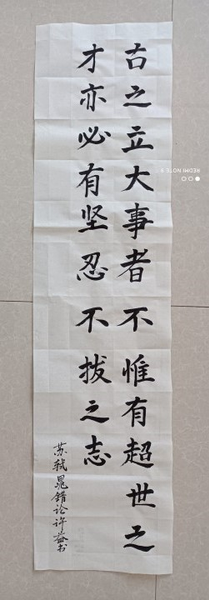 古之立大事者不惟有超世之
才亦必有坚忍不拔之志
苏轼晁错论许益书
REDMI NOTE 9